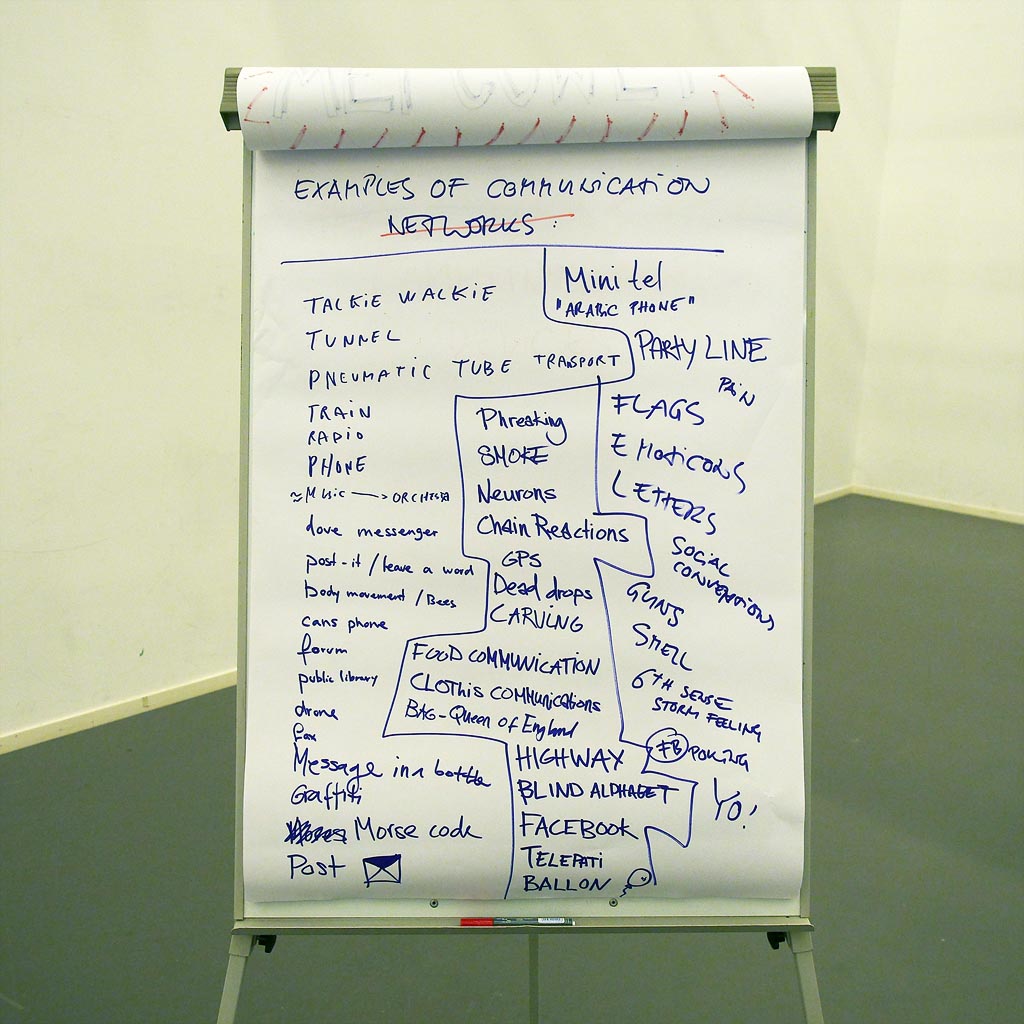 EXAMPLES OF COMMUNICATION
NETWORKS:
TALKIE WALKIE
TUNNEL
PNEUMATIC TUBE TRANSPORT
TRAIN
RADIO
PHONE
≈ Music → ORCHESTRA
dove messenger
post-it / leave a word
body movement / Bees
cans phone
forum
public library
drone
fax
Message in a bottle
Graffiti
Morse code
Post
Phreaking
SMOKE
Neurons
Chain Reactions
GPS
Dead drops
CARVING
FOOD COMMUNICATION
CLOTHiS COMMUNICATIONS
BAG-Queen of England
HIGHWAY
BLIND ALPHABET
FACEBOOK
TELEPATI
BALLON
Minitel
"ARABIC PHONE"
PARTY LINE
PAIN
FLAGS
EMOTICONS
LETTERS
SOCIAL
CONVENTIONS
GUNS
SMELL
6TH SENSE
STORM FEELING
FB POKING
YO!